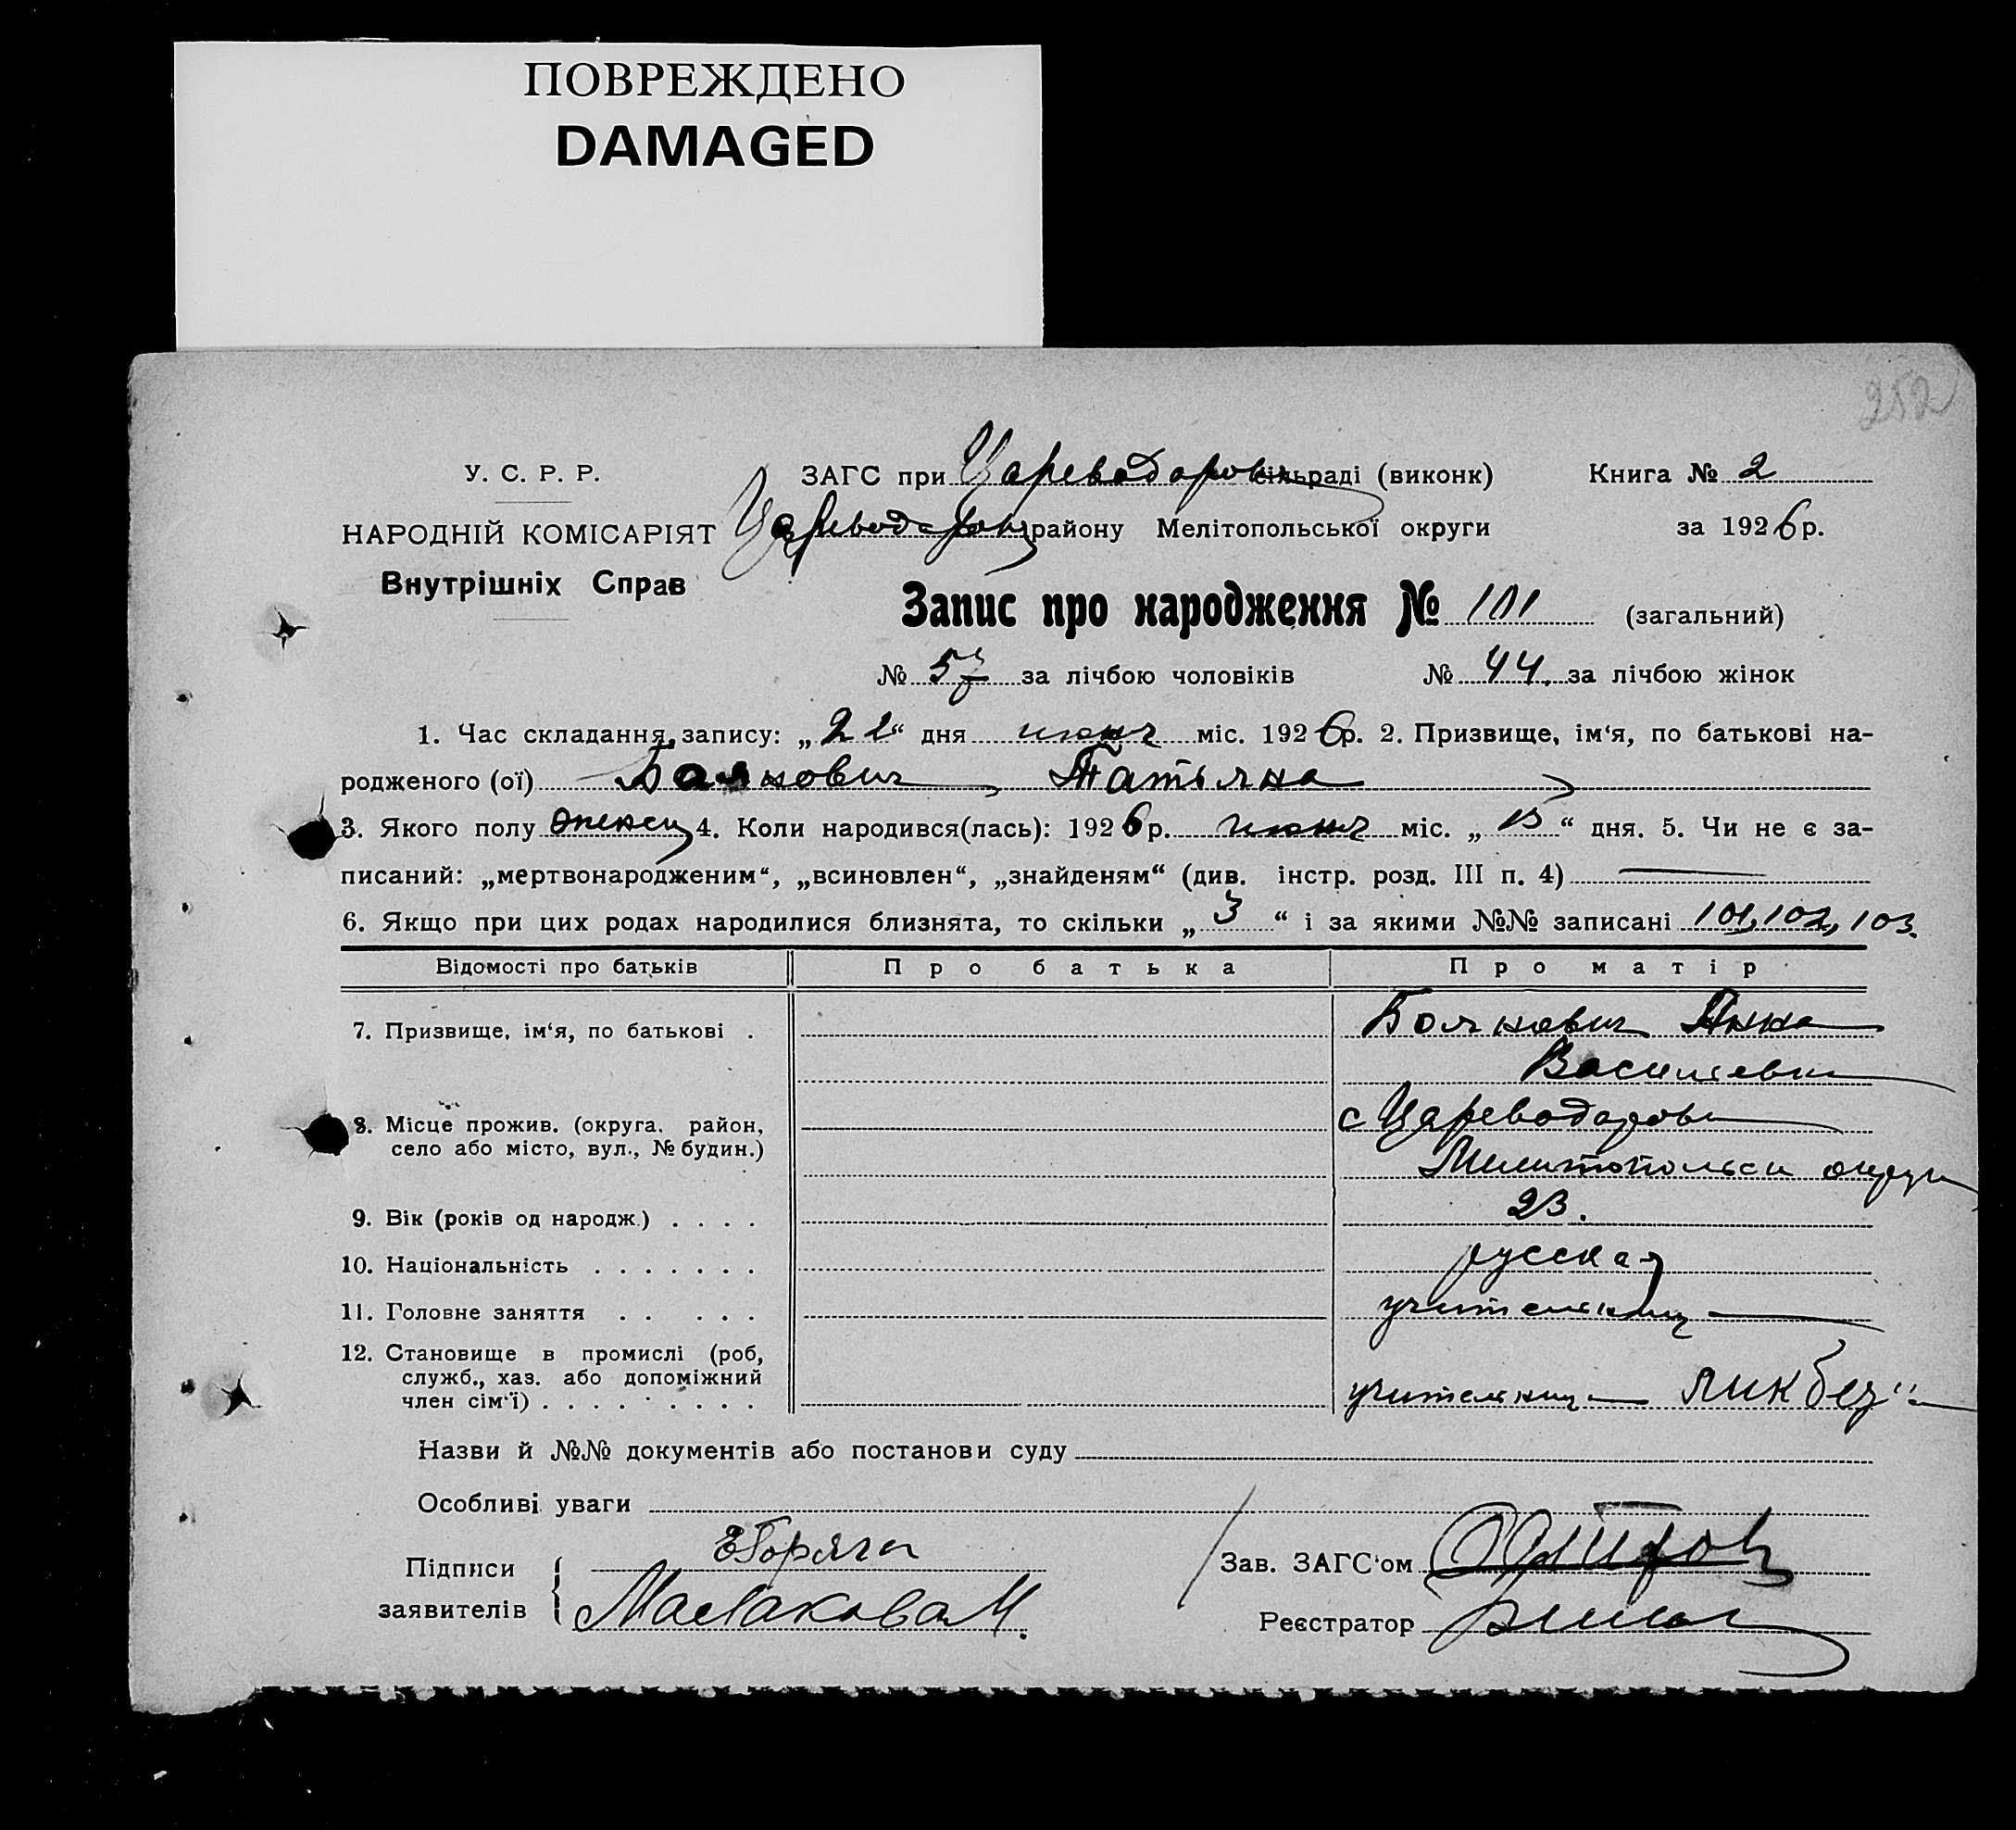 ПОВРЕЖДЕНО
DAMAGED
252
У. С. Р. Р.
ЗАГС при Цареводаров сільраді (виконк)
Книга № 2
НАРОДНІЙ КОМІСАРІЯТ
Цареводаров району Мелітопольської округи
за 1926 р.
Внутрішніх Справ
Запис про народження № 101 (загальний)
№ 57 за лічбою чоловіків № 44. за лічбою жінок
1. Час складання запису: „22“ дня июня міс. 1926 р. 2. Призвище, ім‘я, по батькові на-
родженого (ої) Боянович Татьяна
3. Якого полу женск 4. Коли народився(лась): 1926 р. июня міс. „15“ дня. 5. Чи не є за-
писаний: „мертвонародженим“, „всиновлен“, „знайденям“ (див. інстр. розд. III п. 4) —
6. Якщо при цих родах народилися близнята, то скільки „3“ і за якими №№ записані 101, 102, 103.
Відомості про батьків
Про батька
Про матір
7. Призвище, ім‘я, по батькові .
Боянович Анна
Василевна
8. Місце прожив. (округа, район,
село або місто, вул., № будин.)
с Цареводаров
Мелитопольск округи
9. Вік (років од народж.) . . . .
23.
10. Національність . . . . . . .
русская
11. Головне заняття . . . . .
учительница
12. Становище в промислі (роб,
служб., хаз. або допоміжний
член сім‘ї) . . . . . . . . .
учительница ликбез
Назви й №№ документів або постанови суду
Особливі уваги
Підписи
заявителів
ЕГоряча
Маслакова М.
Зав. ЗАГС‘ом
Реєстратор